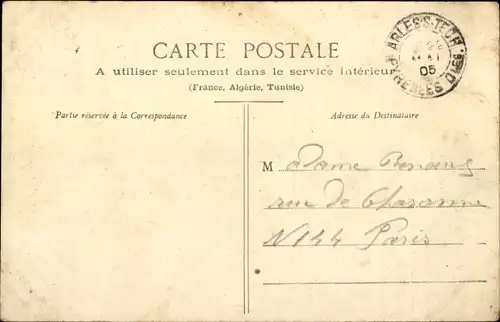 CARTE POSTALE
A utiliser seulement dans le service intérieur
(France, Algérie, Tunisie)
ARLES-S-TECH
05
PYRÉNÉES OLES
Partie réservée à la Correspondance
Adresse du Destinataire
Madame
rue de Charonne
N 144 Paris